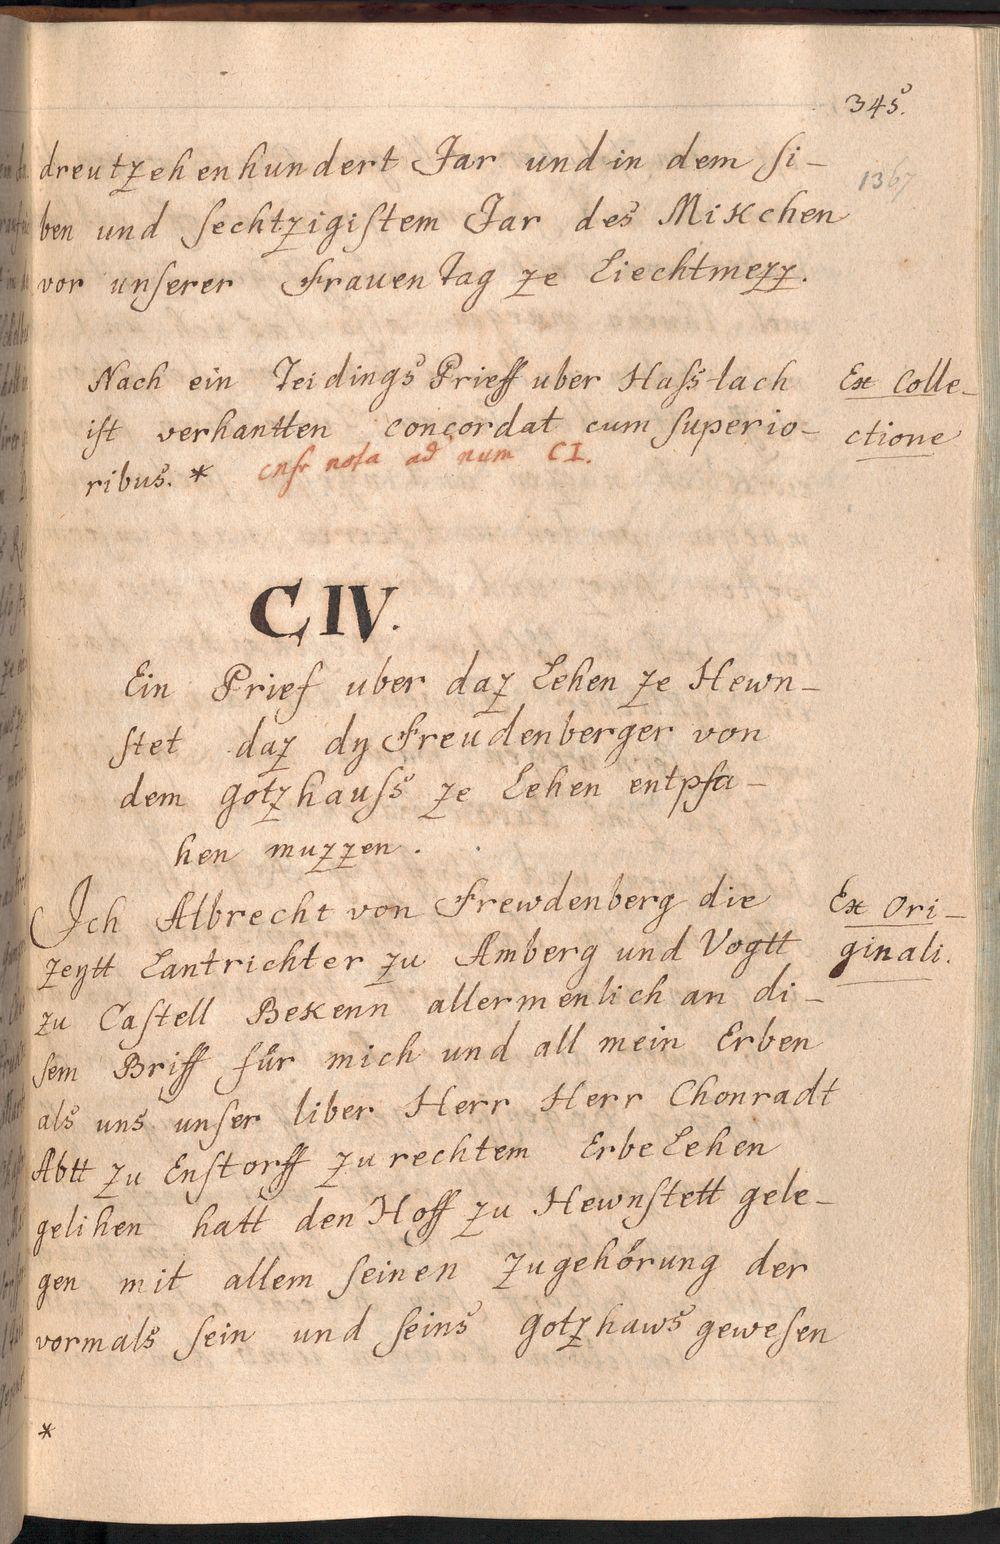 345.
dreutzehenhundert Jar und in dem si-
1367
ben und sechtzigistem Jar des Mikchen
vor unserer Frauen Tag ze Liechtmezz.
Nach ein Teidings Prieff uber Hasslach
Ex Colle-
ist verhantten concordat cum superio-
ctione
ribus. *
cnfr nota ad num CI.
CIV.
Ein Prief uber daz Lehen ze Hewn-
stet daz dy Freudenberger von
dem gotzhauss ze Lehen entpfa-
hen muzzen.
Ich Albrecht von Frewdenberg die
Ex Ori-
zeytt Lantrichter zu Amberg und Vogtt
ginali.
zu Castell Bekenn allermenlich an di-
sem Briff für mich und all mein Erben
als uns unser liber Herr Herr Chonradt
Abtt zu Enstorff zu rechtem Erbe Lehen
gelihen hatt den Hoff zu Hewnstett gele-
gen mit allem seinen zugehörung der
vormals sein und seins gotzhaws gewesen
*